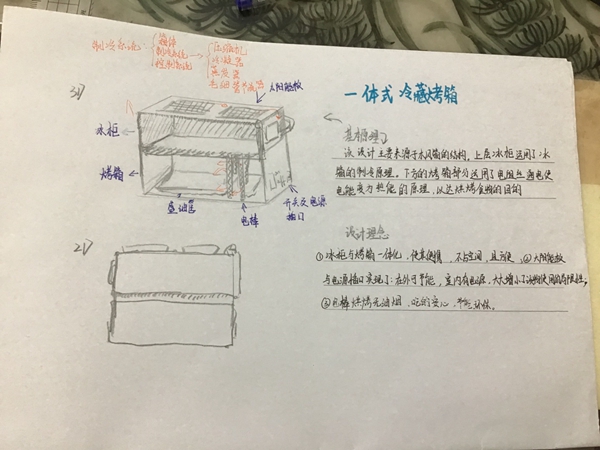 制冷系统
箱体
制冷系统
控制系统
压缩机
冷凝器
蒸发器
毛细管节流器
3D
太阳能板
冰柜
烤箱
盛油筐
电棒
开关及电源
插口
2D
一体式 冷藏烤箱
基本原理
该设计主要来源于冰风箱的结构,上层冰柜运用了冰
箱的制冷原理。下方的烤箱部分运用了电阻丝通电使
电能变为热能的原理,以达烘烤食物的目的
设计理念
①冰柜与烤箱一体化,使来使用,不占空间,且方便,②太阳能板
与电源插口实现了:在外可节能,室内有电源,大大增小了该物使用的局限性,
③电棒烘烤无油烟,吃的安心,节能环保。